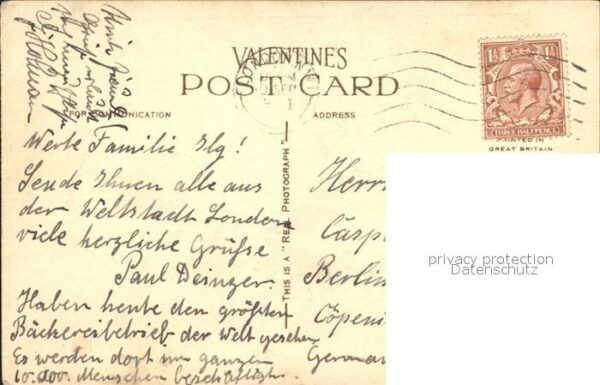 VALENTINES
POST CARD
FOR COMMUNICATION
ADDRESS
1½ 1½
THREE HALFPENCE
PRINTED IN
GREAT BRITAIN
THIS IS A "REAL PHOTOGRAPH"
Werte Familie Ilg!
Sende Ihnen alle aus
der Weltstadt London
viele herzliche Grüße
Paul Deinzer.
Haben heute den größten
Bäckereibetrieb der Welt gesehen
Es werden dort im ganzen
10.000. Menschen beschäftigt.
Herr
Casp
Berlin
Cöpeni
Germa
privacy protection
Datenschutz